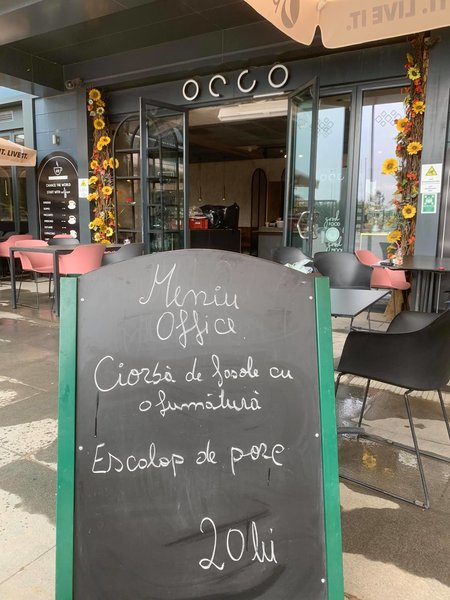 T. LIVE IT.
OCCO
LIVE IT.
CHANGE THE WORLD
good
FOOD
good
MOOD
Meniu
Office
Ciorbă de fasole cu
afumătură
Escalop de porc
20 lei